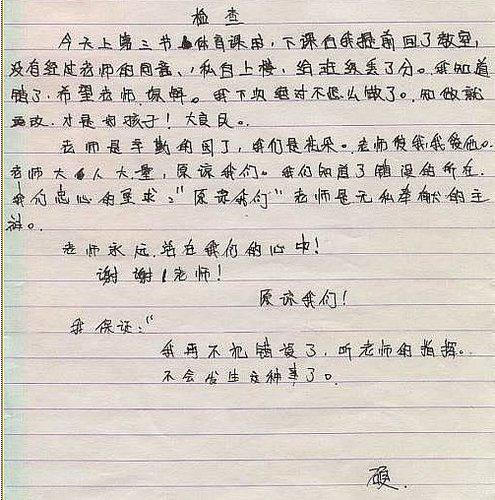 检查
今天上第三节体育课时,下课后我提前回了教室,
没有经过老师的同意、私自上楼,给班级丢了分。我知道
错了,希望老师原谅。我下次绝对不怎么做了。知做就
改,才是好孩子!
老师是辛勤的园丁,我们是花朵。老师爱我,我爱他。
老师大人大量,原谅我们。我们知道了错误的所在,
我们忠心的要求:“原谅我们”老师是无私奉献的主
。
老师永远站在我们的心中!
谢谢!老师!
原谅我们!
我保证:“
我再不犯错误了,听老师的指挥。
不会发生这种事了。